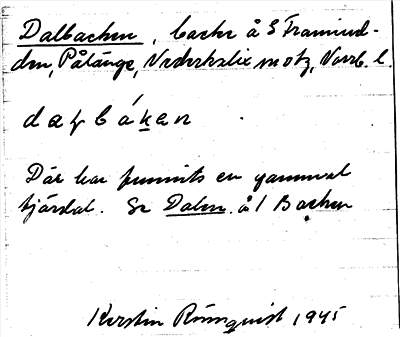 Dalbacken, backe å S Framud-
den, Pålänge, Nederkalix motz, Norrb. l.
dalbákan
Där har funnits en gammal
tjärdal. Se Dalen å / Backen
Kerstin Rönnquist 1945